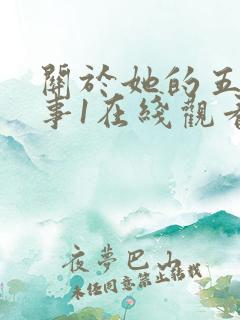 關於她的五
事1在綫觀看
夜夢巴山
未經同意禁止轉載